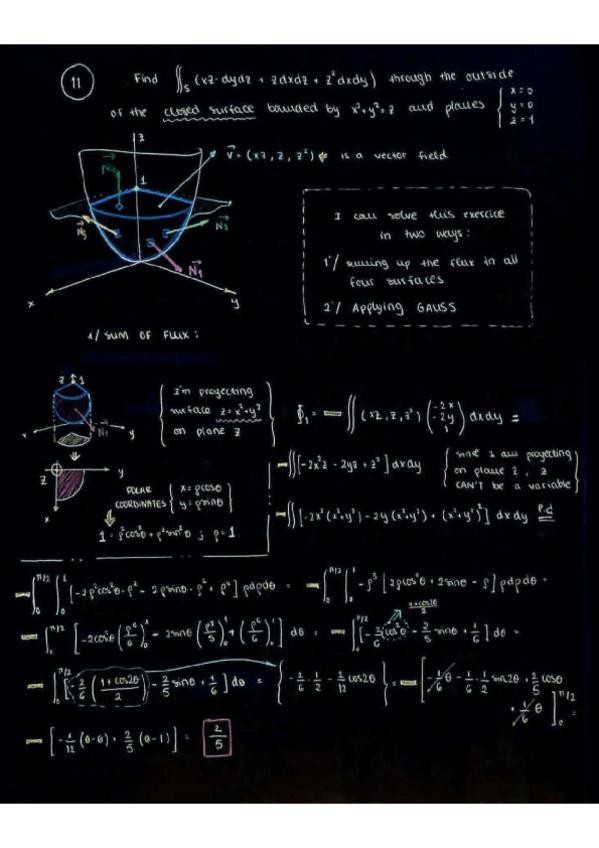 11 Find ∬s (xz·dydz + zdxdz + z²dxdy) through the outside
of the closed surface bounded by x²+y²=z and planes { x=0
y=0
z=1
z
V⃗ = (xz, z, z²) ← is a vector field
1
N⃗4
N⃗3
N⃗2
N⃗1
x
y
I can solve this exercise
in two ways:
1°/ summing up the flux in all
four surfaces
2°/ Applying GAUSS
1/ SUM OF FLUX:
z 1
N⃗1
x
y
I'm proyecting
surface z=x²+y²
on plane z
ϕ1 = - ∬ (xz, z, z²) (-2x
-2y
1) dxdy =
-∬[-2x²z - 2yz + z²] dxdy
since I am proyecting
on plane z, z
CAN'T be a variable
z
y
x
POLAR
COORDINATES { x = ρcosθ
y = ρsinθ
1 = ρ²cos²θ + ρ²sin²θ ; ρ=1
-∬[-2x²(x²+y²) - 2y(x²+y²) + (x²+y²)²] dxdy P.C
-∫₀^π/2 ∫₀^1 [-2ρ²cos²θ·ρ² - 2ρsinθ·ρ² + ρ⁴] ρdρdθ = -∫₀^π/2 ∫₀^1 -ρ³ [2ρcos²θ + 2sinθ - ρ] ρdρdθ =
1+cos2θ
2
-∫₀^π/2 [-2cos²θ (ρ⁶/6)₀^1 - 2sinθ (ρ⁵/5)₀^1 + (ρ⁶/6)₀^1] dθ = -∫₀^π/2 [-2/6 cos²θ - 2/5 sinθ + 1/6] dθ =
-∫₀^π/2 [-2/6 (1+cos2θ/2) - 2/5 sinθ + 1/6] dθ = { -2/6 · 1/2 - 2/12 cos2θ } = -[-1/6 θ - 1/6 · 1/2 sin2θ + 2/5 cosθ
+ 1/6 θ ]₀^π/2 =
-[-1/12 (0-0) + 2/5 (0-1)] = 2/5